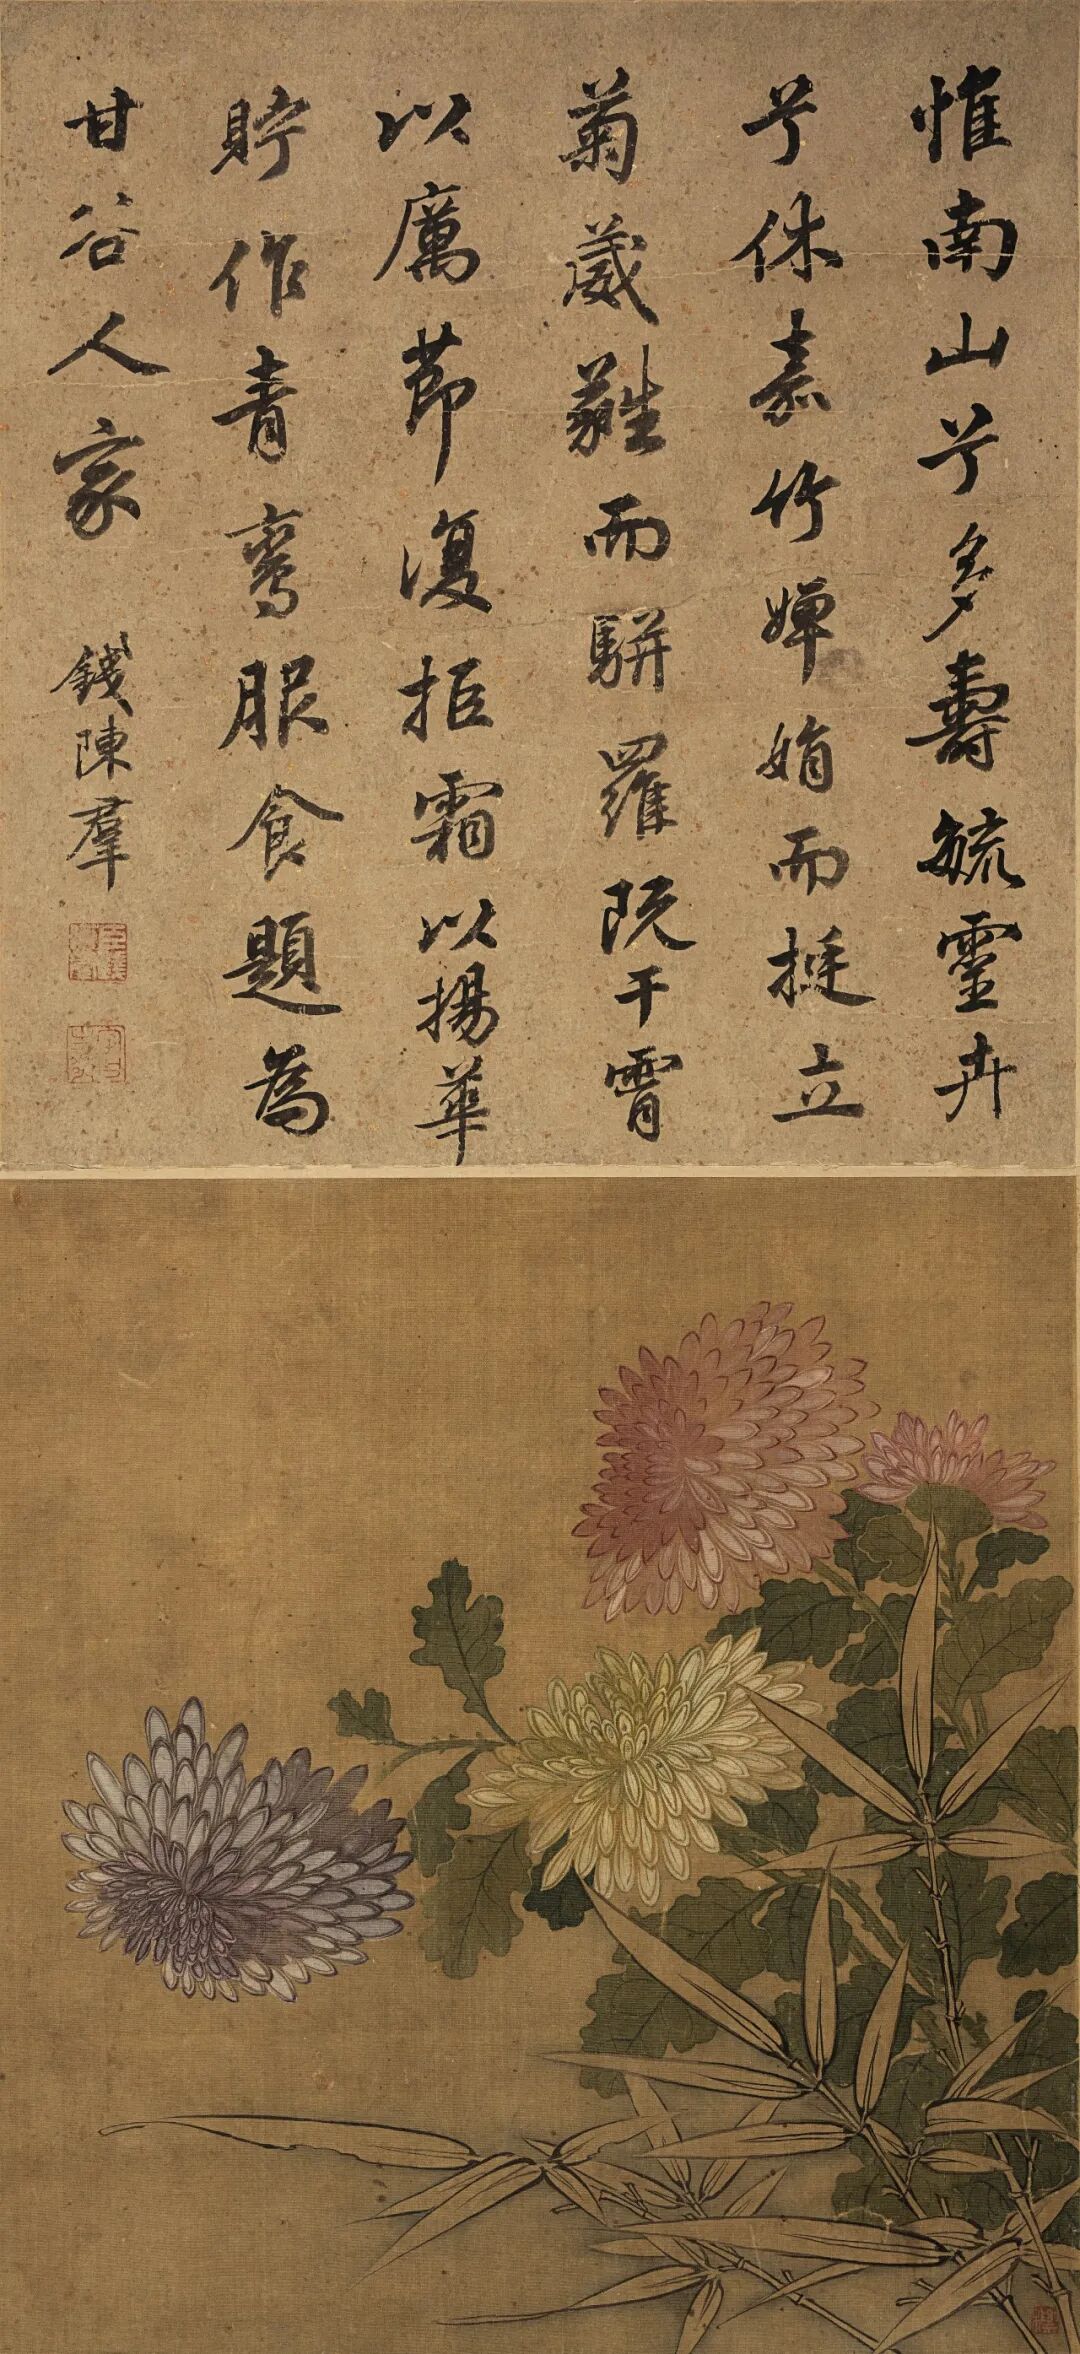 惟南山兮多壽毓靈卉
兮休嘉竹嬋娟而挺立
菊葳蕤而駢羅既干霄
以厲節復拒霜以揚華
貯作青鸞服食題為
甘谷人家 錢陳羣